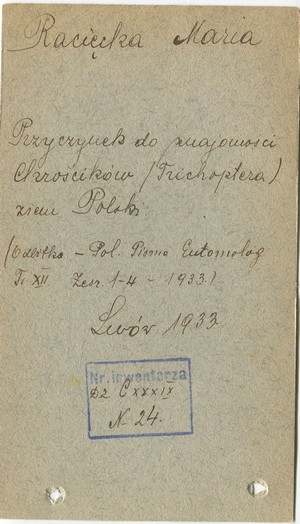 Racięcka Maria
Przyczynek do znajomości
Chróścików (Trichoptera)
ziem Polski
(Odbitka - Pol. Pismo Entomolog
T. XII Zesz 1-4 - 1933.)
Lwów 1933
Nr. inwentarza
D2 CXXXIX
N. 24.